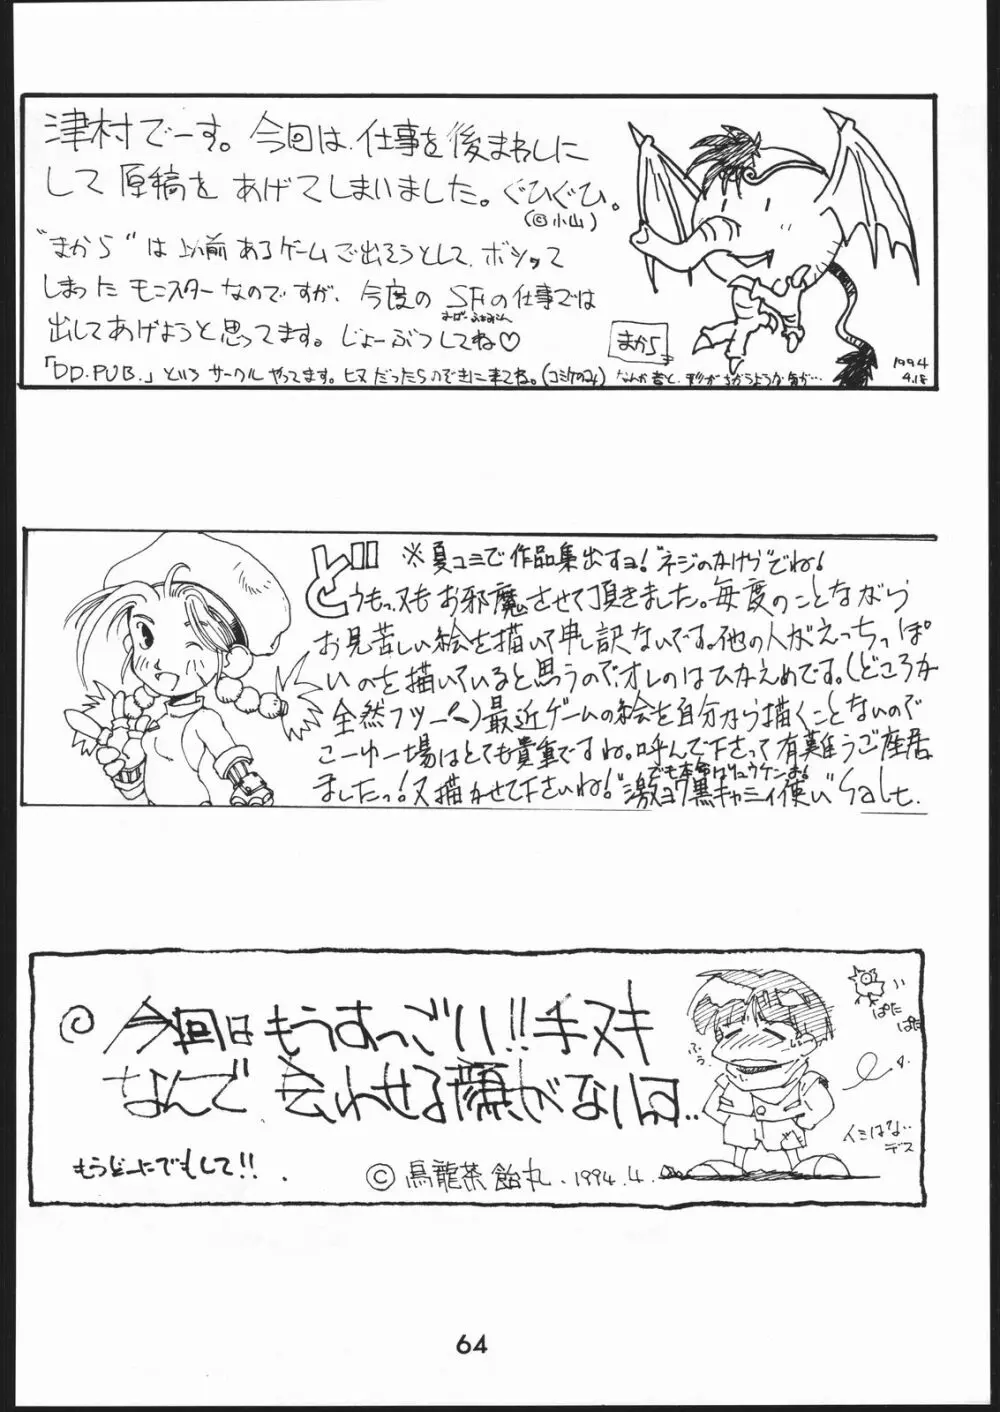 津村でーす。今回は、仕事を後まわしに
して原稿をあげてしまいました。ぐひぐひ。
(©小山)
"まから"は以前あるゲームで出そうとして、ボツって
しまったモンスターなのですが、今度のSFの仕事では
すーぱーふぁみこん
出してあげようと思ってます。じょーぶつしてね♡
「DD.PUB.」というサークルやってます。ヒマだったらのぞきに来てね。(コミケのみ) なんか昔と、形がちがうような気が…
まから
1994
4.18
※夏コミで作品集出すヨ!"ネジのかけら"でね!
どうもっ、又もお邪魔させて頂きました。毎度のことながら
お見苦しい絵を描いて申し訳ないです。他の人がえっちっぽ
いのを描いていると思うので、オレのはひかえめです。(どころか
全然フツー〜)最近ゲームの絵を自分から描くことないので
こーゆー場はとても貴重ですね。呼んで下さって有難うご座居
ましたっ!又描かせて下さいね!"激ヨワ黒キャミィ使い"Salt.
でも本命はリュウケンよ!
今回はもうすっごい!!手ヌキ
なんで、会わせる顔がないにょ..
もうどーにでもして!!.
©烏龍茶飴丸.1994.4.
ふぅ
ぱた
ぱた
イミはない
デス
64